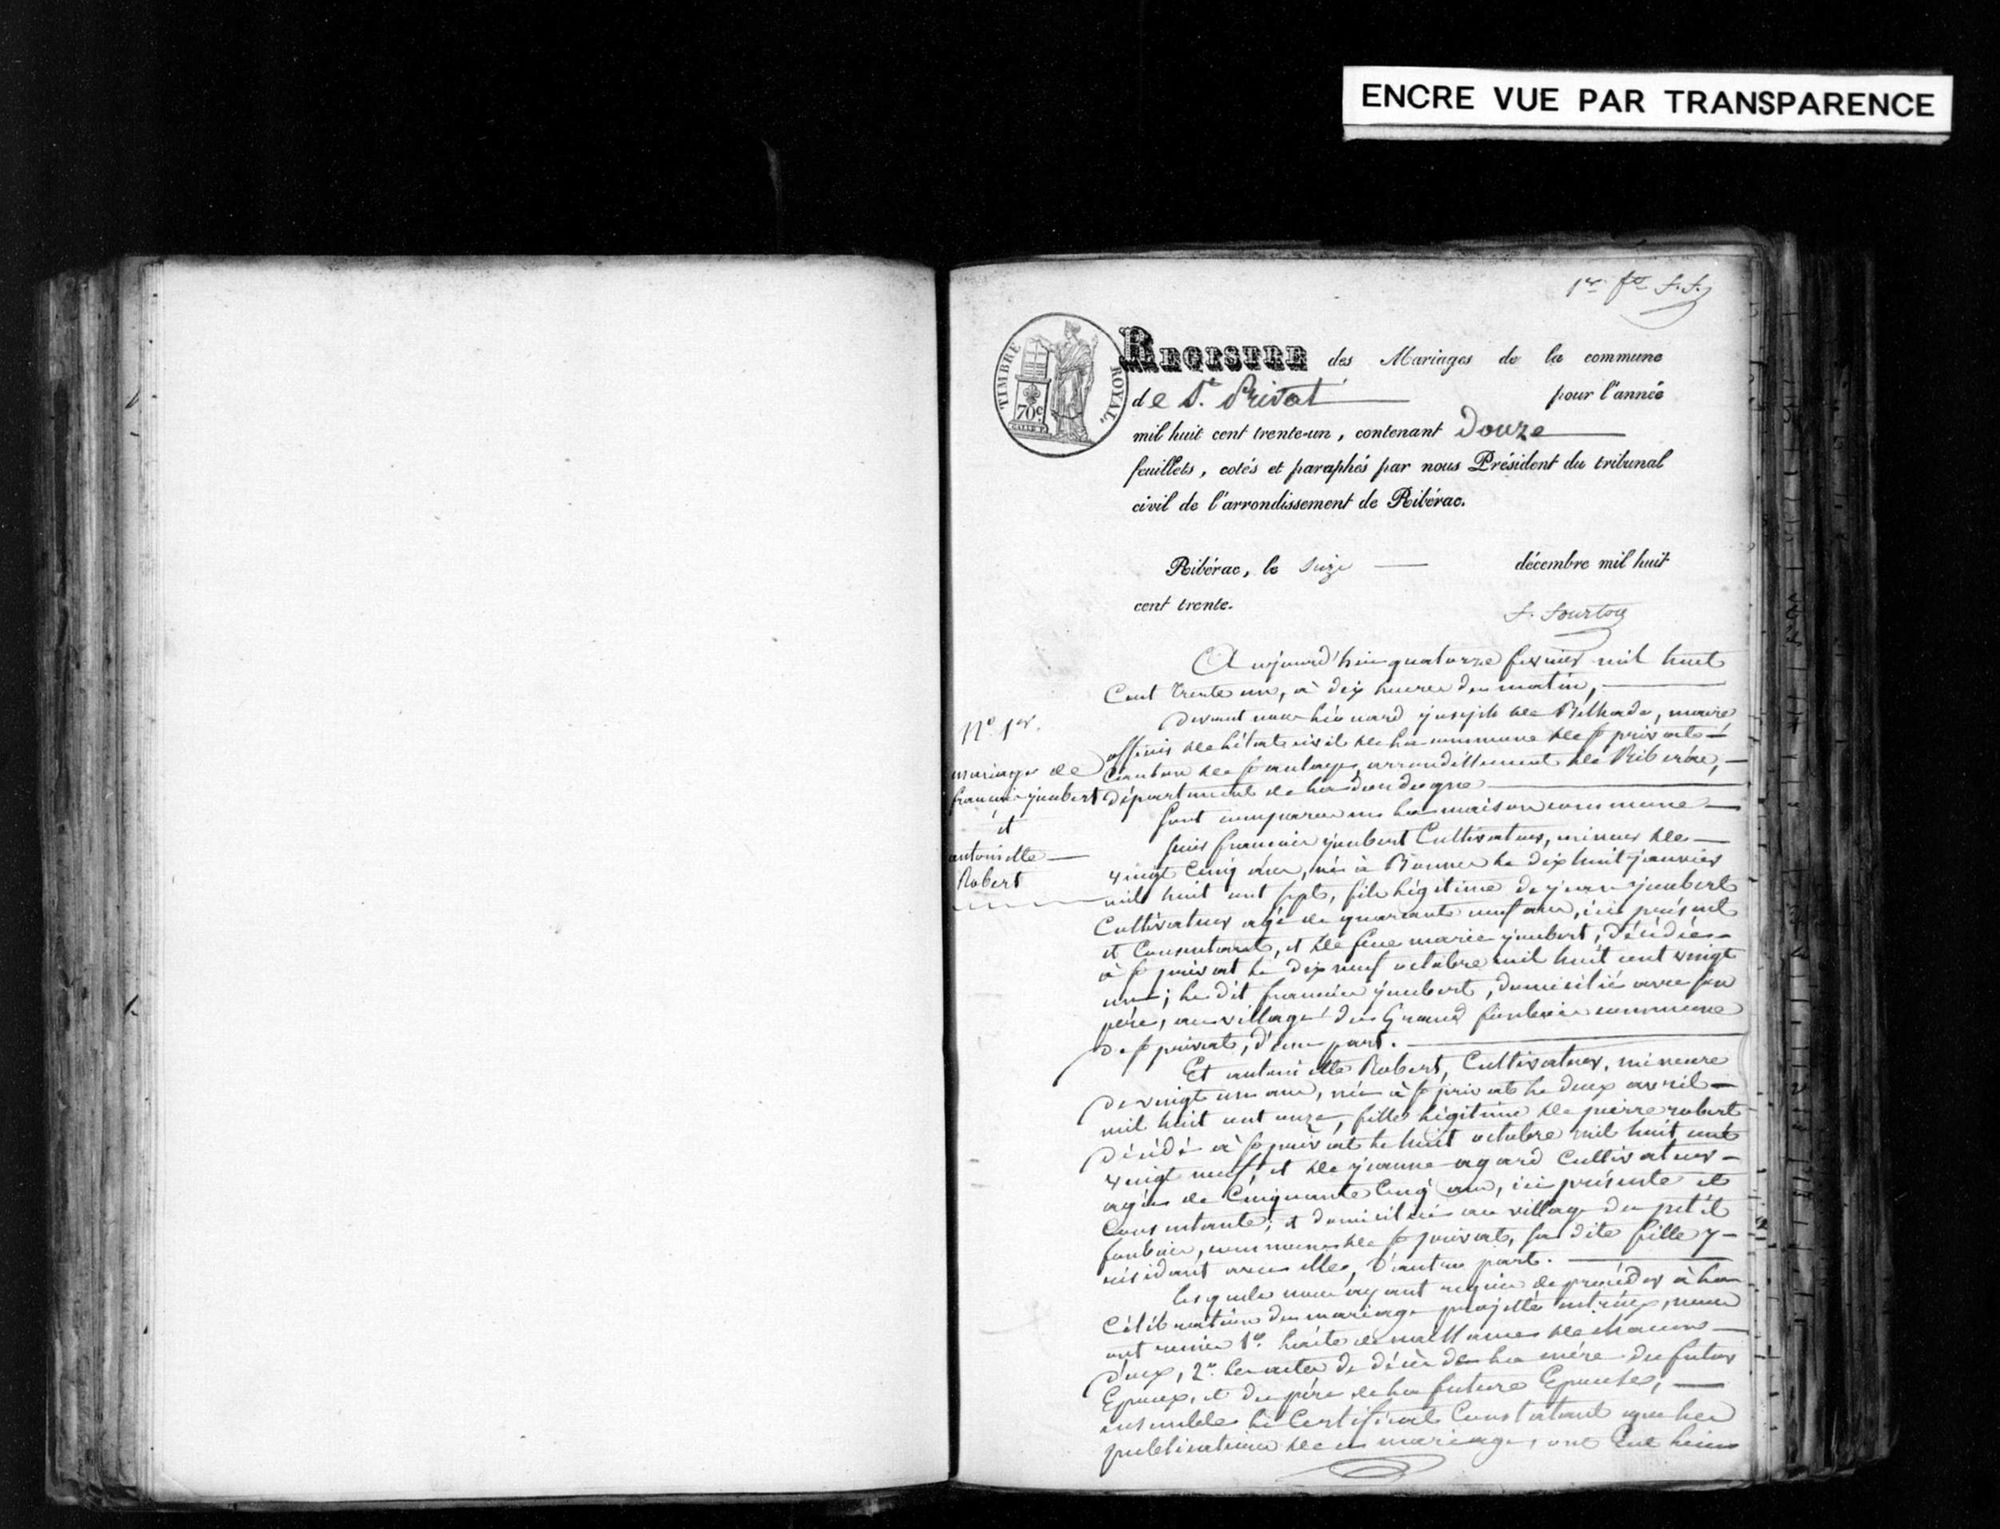 ENCRE VUE PAR TRANSPARENCE
1er fto f.f.
TIMBRE ROYAL.
70c
REGISTRE des Mariages de la commune
de St. Privat pour l'année
mil huit cent trente-un, contenant Douze
feuillets, cotés et paraphés par nous Président du tribunal
civil de l'arrondissement de Ribérac.
Ribérac, le seize décembre mil huit
cent trente.
Aujourd'hui quatorze fevrier mil huit
Cent trente un, à dix heures du matin,
devant nous Léonard joseph de Belhade, maire
officier de l'état civil de la commune de st privat
Canton de st aulaye, arrondissement de Ribérac,
département de la dordogne
Sont comparus en la maison commune
N° 1er.
mariage de
francois joubert
et
antoinette
Robert
francois joubert Cultivateur, mineur de
vingt Cinq ans, né à Bonnes le dix huit janvier
mil huit cent sept, fils légitime de jean joubert
Cultivateur agé de quarante neuf ans, ici présent
et Consentant, et de feue marie joubert, décédée
à st privat le dix neuf octobre mil huit cent vingt
un; le dit francois joubert, domicilié avec son
père, au village du Grand commune
de st privat, d'une part.
Et antoinette Robert, Cultivateur, mineure
de vingt un ans, née à st privat le deux avril
mil huit cent onze, fille légitime de pierre robert
décédé à st privat le huit octobre mil huit cent
vingt neuf, et de jeanne agard Cultivateur
agée de Cinquante Cinq ans, ici présente et
Consentante, et domiciliée au village du petit
commune de st privat, sa dite fille y
résidant avec elle, d'autre part.
Lesquels nous ayant requis de procéder à la
Célébration du mariage projetté entr'eux, nous
ont remis 1° l'acte de naissance de chacun
d'eux, 2° les actes de décès de la mère du futur
Epoux, et du père de la future Epouse,
ensemble le Certificat Constatant que les
publications de ce mariage, ont Eut lieu